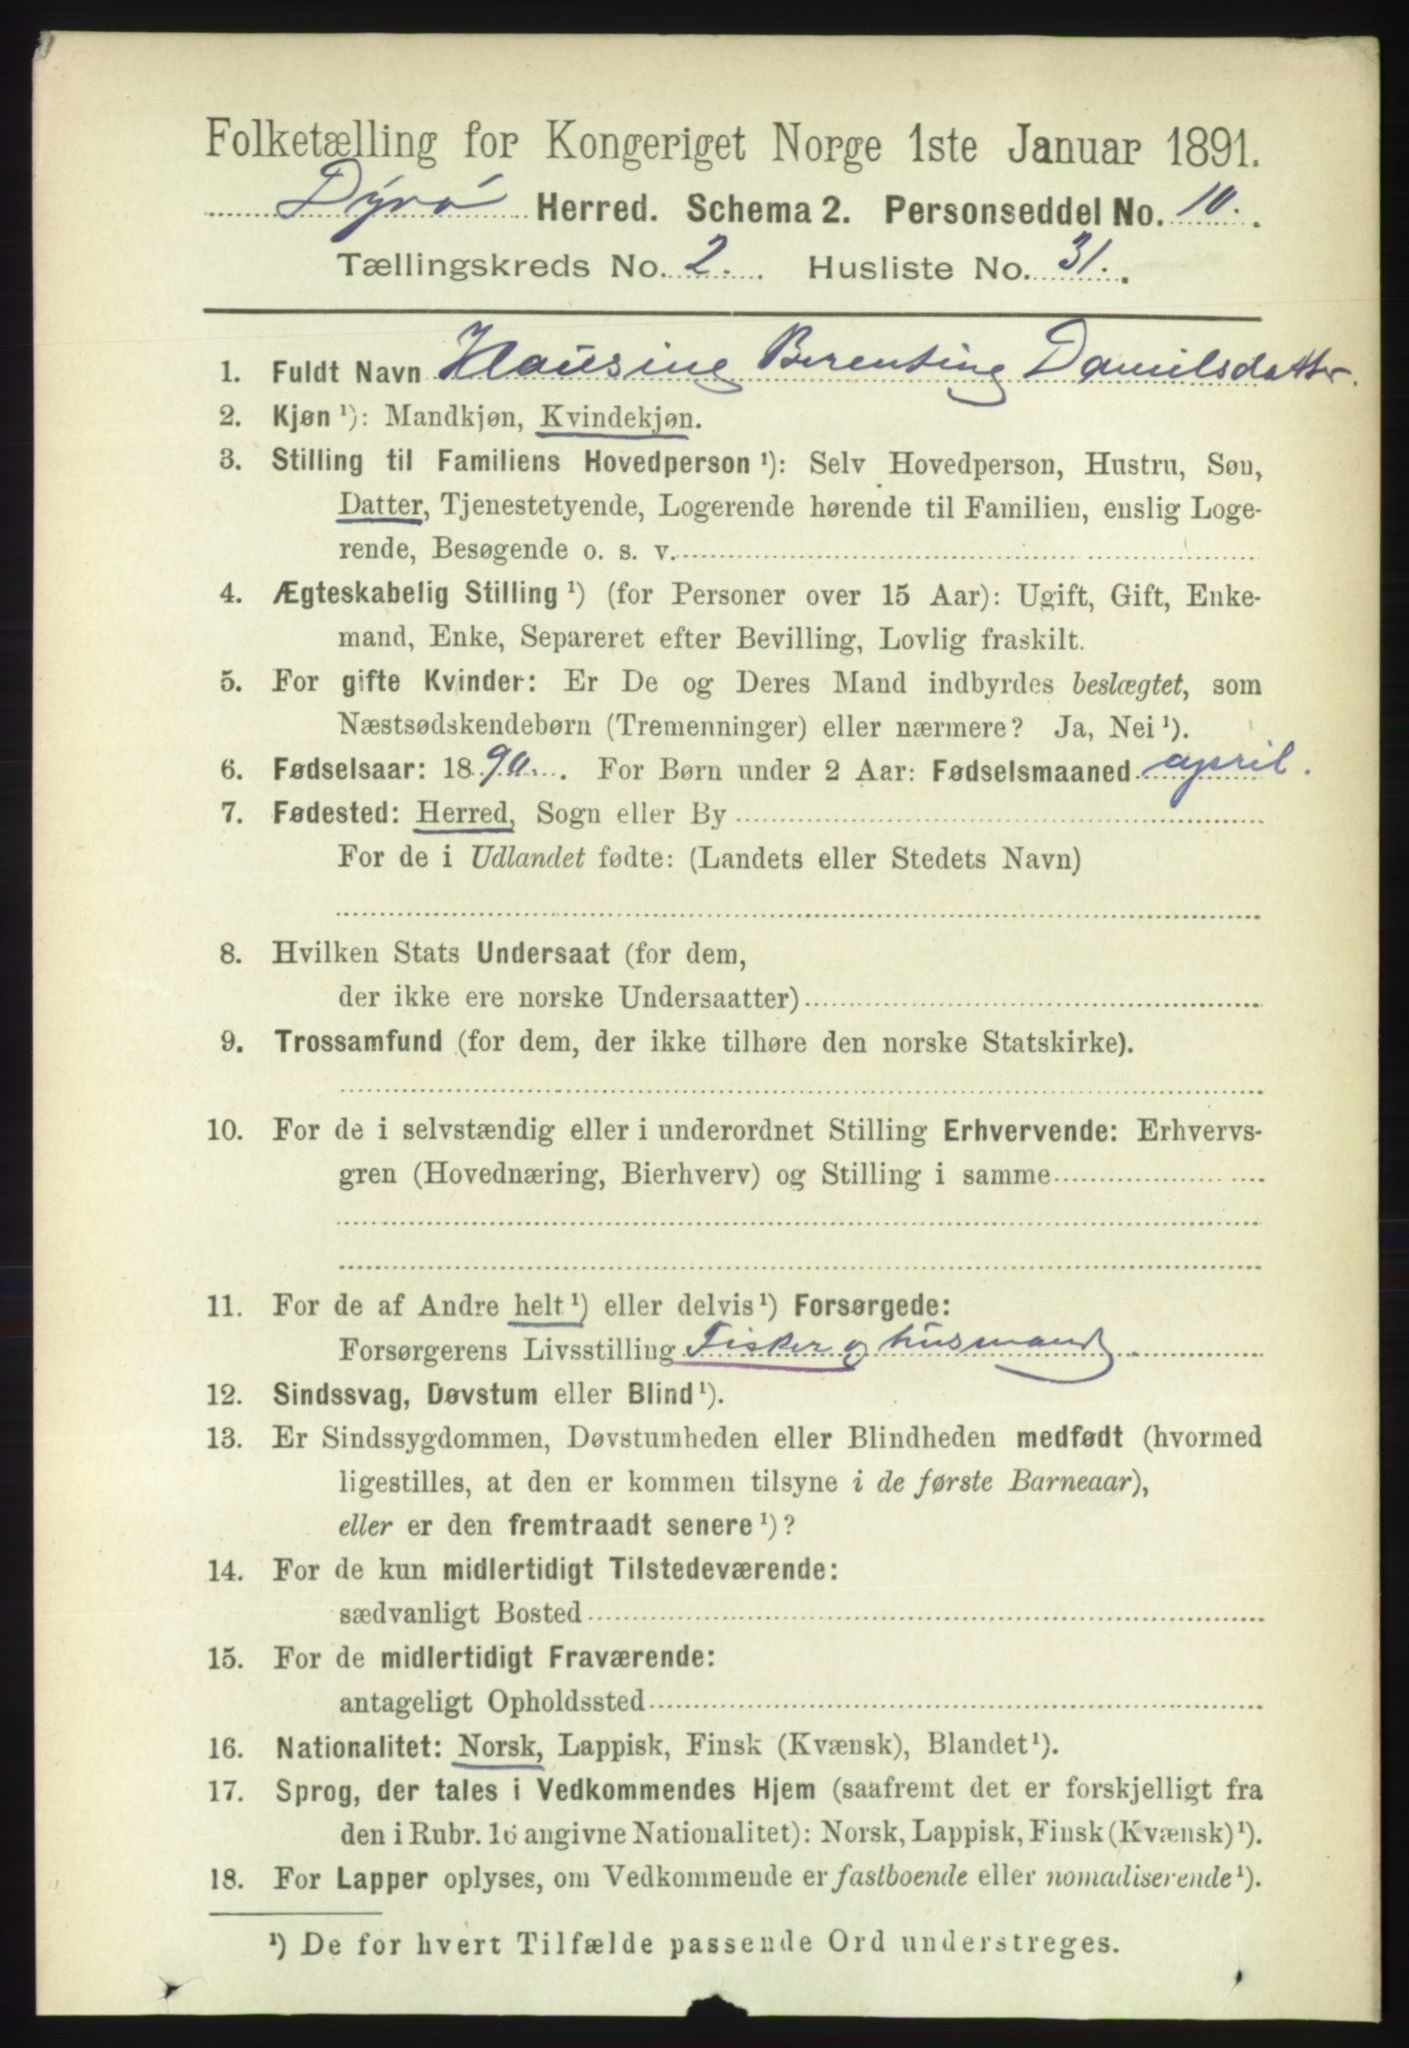 Folketælling for Kongeriget Norge 1ste Januar 1891.
Dyrö Herred. Schema 2. Personseddel No. 10.
Tællingskreds No. 2. Husliste No. 31.
1. Fuldt Navn Hansine Berentine Danielsdatter.
2. Kjøn ¹): Mandkjøn, Kvindekjøn.
3. Stilling til Familiens Hovedperson ¹): Selv Hovedperson, Hustru, Søn,
Datter, Tjenestetyende, Logerende hørende til Familien, enslig Loge-
rende, Besøgende o. s. v.
4. Ægteskabelig Stilling ¹) (for Personer over 15 Aar): Ugift, Gift, Enke-
mand, Enke, Separeret efter Bevilling, Lovlig fraskilt.
5. For gifte Kvinder: Er De og Deres Mand indbyrdes beslægtet, som
Næstsødskendebørn (Tremenninger) eller nærmere? Ja, Nei ¹).
6. Fødselsaar: 1890. For Børn under 2 Aar: Fødselsmaaned april.
7. Fødested: Herred, Sogn eller By
For de i Udlandet fødte: (Landets eller Stedets Navn)
8. Hvilken Stats Undersaat (for dem,
der ikke ere norske Undersaatter)
9. Trossamfund (for dem, der ikke tilhøre den norske Statskirke).
10. For de i selvstændig eller i underordnet Stilling Erhvervende: Erhvervs-
gren (Hovednæring, Bierhverv) og Stilling i samme
11. For de af Andre helt ¹) eller delvis ¹) Forsørgede:
Forsørgerens Livsstilling Fisker og husmand
12. Sindssvag, Døvstum eller Blind ¹).
13. Er Sindssygdommen, Døvstumheden eller Blindheden medfødt (hvormed
ligestilles, at den er kommen tilsyne i de første Barneaar),
eller er den fremtraadt senere ¹)?
14. For de kun midlertidigt Tilstedeværende:
sædvanligt Bosted
15. For de midlertidigt Fraværende:
antageligt Opholdssted
16. Nationalitet: Norsk, Lappisk, Finsk (Kvænsk), Blandet ¹).
17. Sprog, der tales i Vedkommendes Hjem (saafremt det er forskjelligt fra
den i Rubr. 16 angivne Nationalitet): Norsk, Lappisk, Finsk (Kvænsk) ¹).
18. For Lapper oplyses, om Vedkommende er fastboende eller nomadiserende ¹).
¹) De for hvert Tilfælde passende Ord understreges.